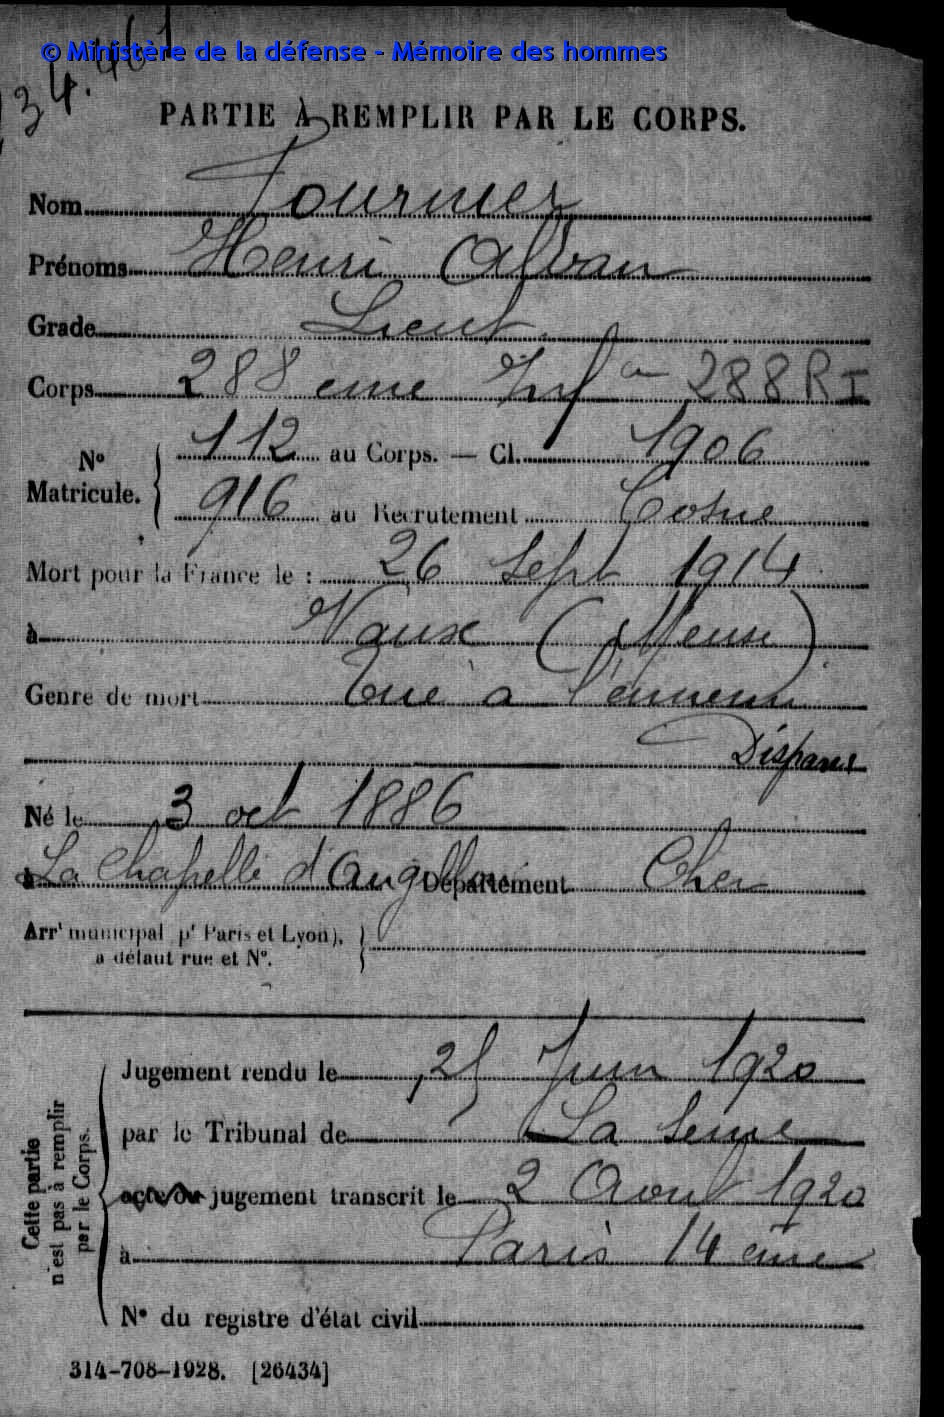 © Ministère de la défense - Mémoire des hommes
234.461
PARTIE À REMPLIR PAR LE CORPS.
Nom Fournier
Prénoms Henri Alban
Grade Lieut.
Corps 288 eme Inf ie 288 RI
N° Matricule. { 112 au Corps. — Cl. 1906
916 au Recrutement Cosne
Mort pour la France le : 26 Sept 1914
à Vaux (Meuse)
Genre de mort Tué à l'ennemi
Disparu
Né le 3 oct 1886
à La Chapelle d'Angillon Département Cher
Arr' municipal p' Paris et Lyon),
à défaut rue et N°.
Cette partie n'est pas à remplir par le Corps.
Jugement rendu le 25 Juin 1920
par le Tribunal de La Seine
acte ou jugement transcrit le 2 Aout 1920
à Paris 14 eme
N° du registre d'état civil
314-708-1928. [26434]